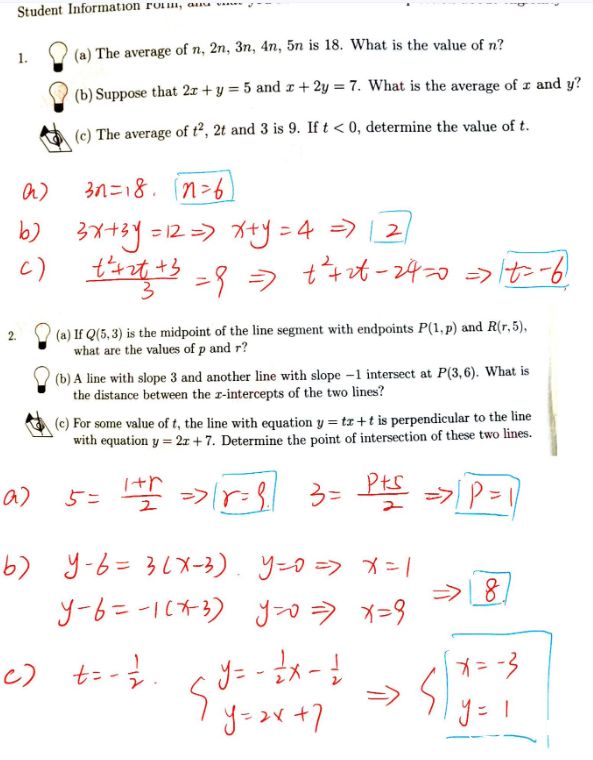 Student Information Form, and
1. (a) The average of n, 2n, 3n, 4n, 5n is 18. What is the value of n?
(b) Suppose that 2x + y = 5 and x + 2y = 7. What is the average of x and y?
(c) The average of t², 2t and 3 is 9. If t < 0, determine the value of t.
a) 3n=18. n=6
b) 3x+3y=12 => x+y=4 => 2
c) (t²+2t+3)/3 = 9 => t²+2t-24=0 => t=-6
2. (a) If Q(5,3) is the midpoint of the line segment with endpoints P(1,p) and R(r,5),
what are the values of p and r?
(b) A line with slope 3 and another line with slope −1 intersect at P(3,6). What is
the distance between the x-intercepts of the two lines?
(c) For some value of t, the line with equation y = tx + t is perpendicular to the line
with equation y = 2x + 7. Determine the point of intersection of these two lines.
a) 5 = (1+r)/2 => r=9. 3 = (p+5)/2 => p=1
b) y-6=3(x-3). y=0 => x=1
y-6=-1(x-3) y=0 => x=9 => 8.
c) t=-1/2. { y=-1/2x-1/2 => { x=-3
y=2x+7 y=1